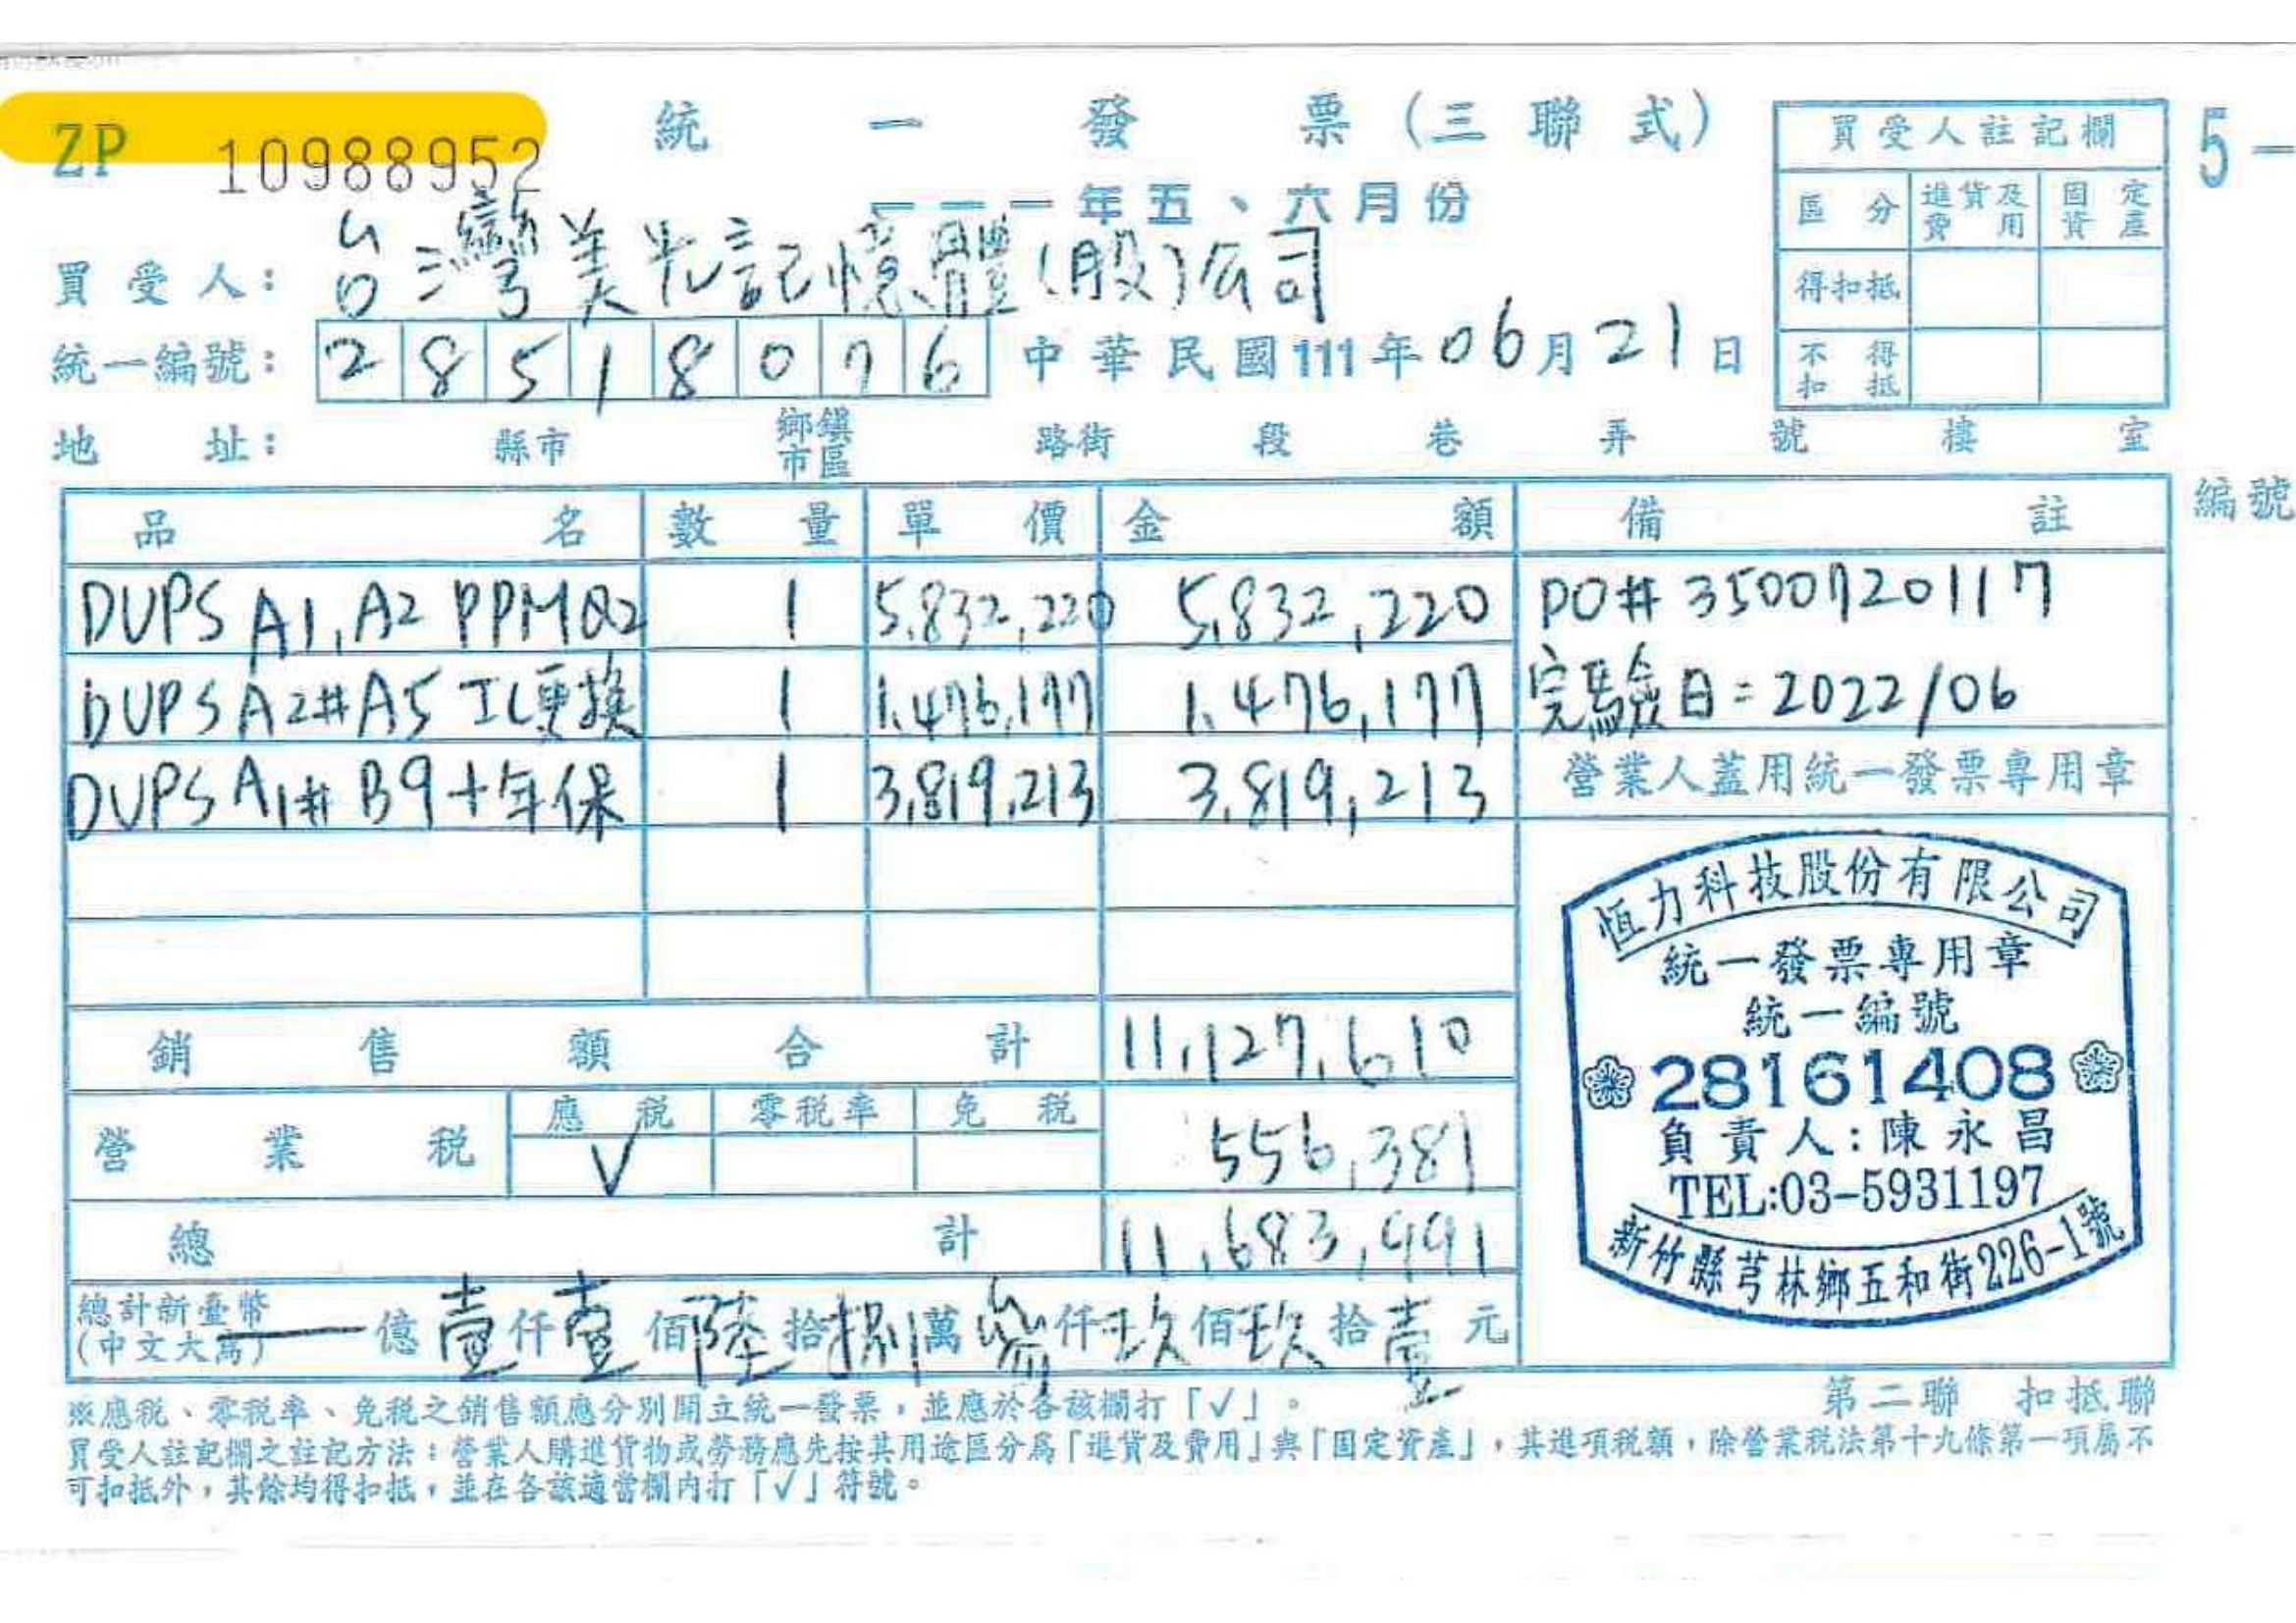 ZP 10988952
統一發票(三聯式)
一一一年五、六月份
買受人註記欄
區分 進貨及費用 固定資產
得扣抵
不得扣抵
5-
買受人: 台灣美光記憶體(股)公司
統一編號: 28518076 中華民國111年06月21日
地址: 縣市 鄉鎮市區 路街 段 巷 弄 號 樓 室
編號
品名 數量 單價 金額 備註
DUPS A1,A2 PPM Q2 1 5,832,220 5,832,220 PO# 3500720117
DUPS A2#A5 IL更換 1 1,476,177 1,476,177 完驗日=2022/06
DUPS A1# B9十年保 1 3,819,213 3,819,213
營業人蓋用統一發票專用章
銷售額合計 11,127,610
營業稅 應稅 零稅率 免稅 556,381
V
總計 11,683,991
總計新臺幣(中文大寫) — 億壹仟壹佰陸拾捌萬參仟玖佰玖拾壹元
恆力科技股份有限公司
統一發票專用章
統一編號
28161408
負責人:陳永昌
TEL:03-5931197
新竹縣芎林鄉五和街226-1號
第二聯 扣抵聯
※應稅、零稅率、免稅之銷售額應分別開立統一發票,並應於各該欄打「√」。
買受人註記欄之註記方法:營業人購進貨物或勞務應先按其用途區分為「進貨及費用」與「固定資產」,其進項稅額,除營業稅法第十九條第一項屬不
可扣抵外,其餘均得扣抵,並在各該適當欄內打「√」符號。